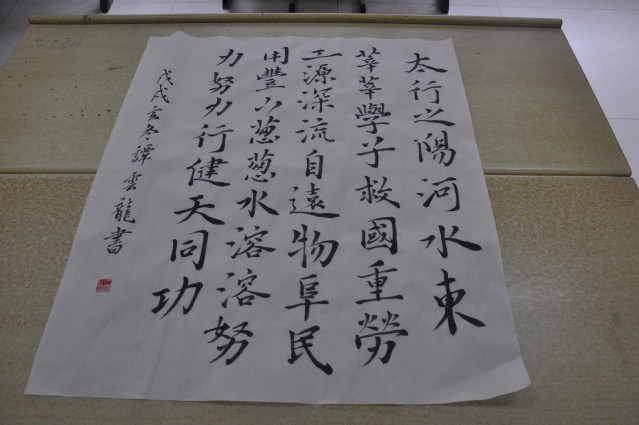 太行之陽河水東
莘莘學子救國重勞
工源深流自遠物阜民
用豐山葱葱水溶溶努
力努力行健天同功
戊戌玄冬譚雲龍書